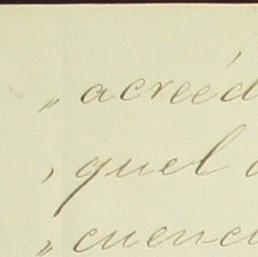 „ acreéd
, quel
„ cuenci